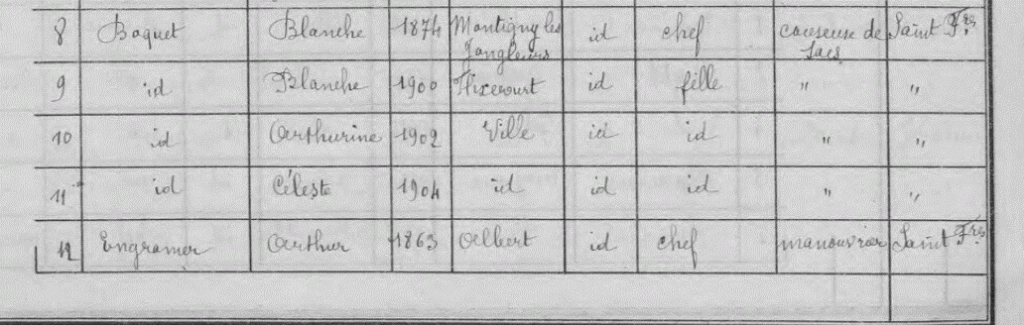 8 Boquet Blanche 1874 Montigny les Jongleurs id chef couseuse de sacs Saint Frs
9 id Blanche 1900 Flixecourt id fille " "
10 id Arthurine 1902 Ville id id " "
11 id Céleste 1904 id id id " "
12 Engramer Arthur 1863 Albert id chef manouvrier Saint Frs